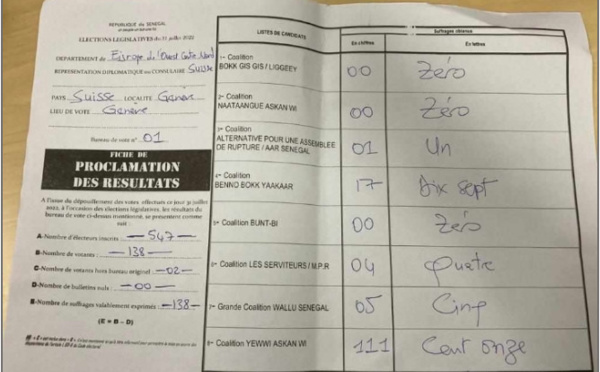 REPUBLIQUE du SENEGAL
ELECTIONS LEGISLATIVES du 31 juillet 2022
DEPARTEMENT de Europe de l'Ouest Centre Nord
REPRESENTATION DIPLOMATIQUE ou CONSULAIRE Suisse
PAYS Suisse LOCALITE Genève
LIEU DE VOTE Genève
Bureau de vote n° 01
FICHE DE
PROCLAMATION
DES RESULTATS
A l'issue du dépouillement des votes effectués ce jour 31 juillet
2022, à l'occasion des élections législatives, les résultats du
bureau de vote ci-dessus mentionné, se présentent comme
suit :
A-Nombre d'électeurs inscrits —547—
B-Nombre de votants —138—
C-Nombre de votants hors bureau originel —02—
D-Nombre de bulletins nuls —00—
E-Nombre de suffrages valablement exprimés —138—
(E = B - D)
LISTES DE CANDIDATS
Suffrages obtenus
En chiffres
En lettres
1- Coalition
BOKK GIS GIS / LIGGEEY
00
Zéro
2- Coalition
NAATAANGUE ASKAN WI
00
Zéro
3- Coalition
ALTERNATIVE POUR UNE ASSEMBLEE
DE RUPTURE / AAR SENEGAL
01
Un
4- Coalition
BENNO BOKK YAAKAAR
17
Dix sept
5- Coalition BUNT-BI
00
Zéro
6- Coalition LES SERVITEURS / M.P.R
04
quatre
7- Grande Coalition WALLU SENEGAL
05
Cinq
8- Coalition YEWWI ASKAN WI
111
Cent onze